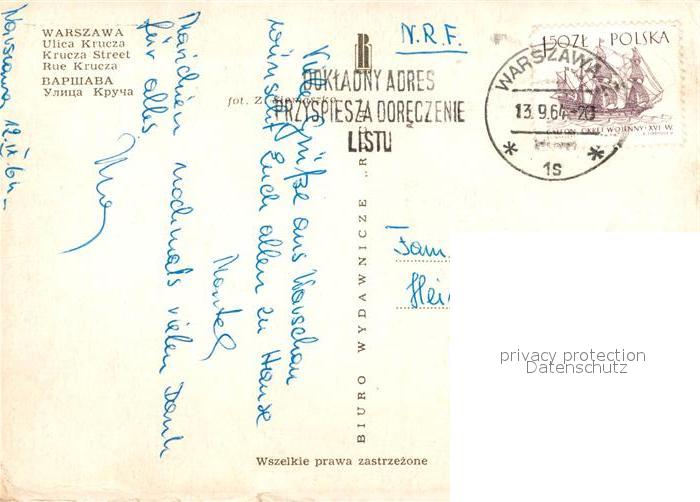 WARSZAWA
Ulica Krucza
Krucza Street
Rue Krucza
ВАРШАВА
Улица Круча
fot. Z.
N.R.F.
1,50 ZŁ POLSKA
GALEON, OKRĘT WOJENNY - XVI W.
WARSZAWA
13.9.64-20
* 1s *
DOKŁADNY ADRES
PRZYSPIESZA DORĘCZENIE
LISTU
Warszawa 12.IX.64.
Viele Grüße aus Warschau
wünscht Euch allen zu Hause
nochmals vielen Dank
für alles
Fam.
Hei
BIURO WYDAWNICZE „R
Wszelkie prawa zastrzeżone
privacy protection
Datenschutz